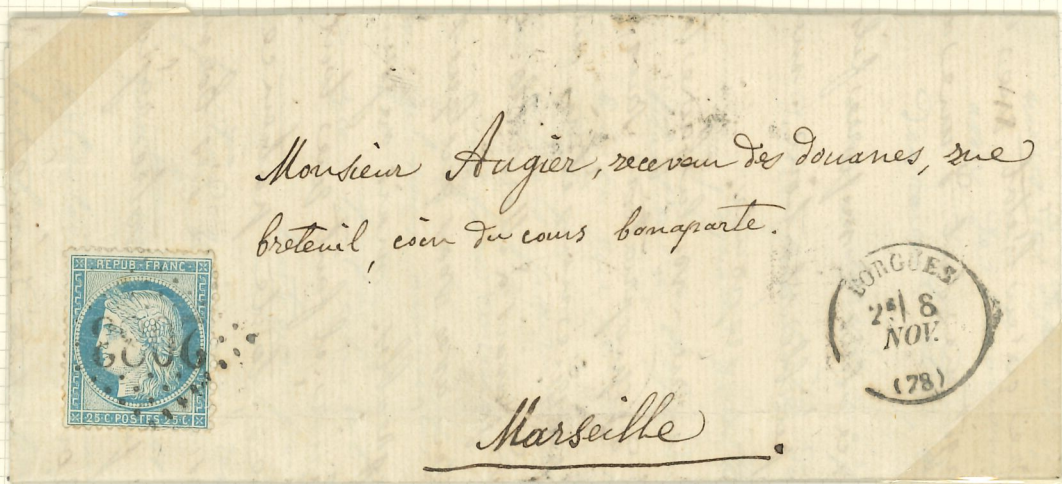 Monsieur Augier, receveur des douanes, rue
breteuil, coin du cours bonaparte.
REPUB·FRANC
25·C·POSTES·25·C
LORGUES
2ᵉ 8
NOV.
(78)
Marseille